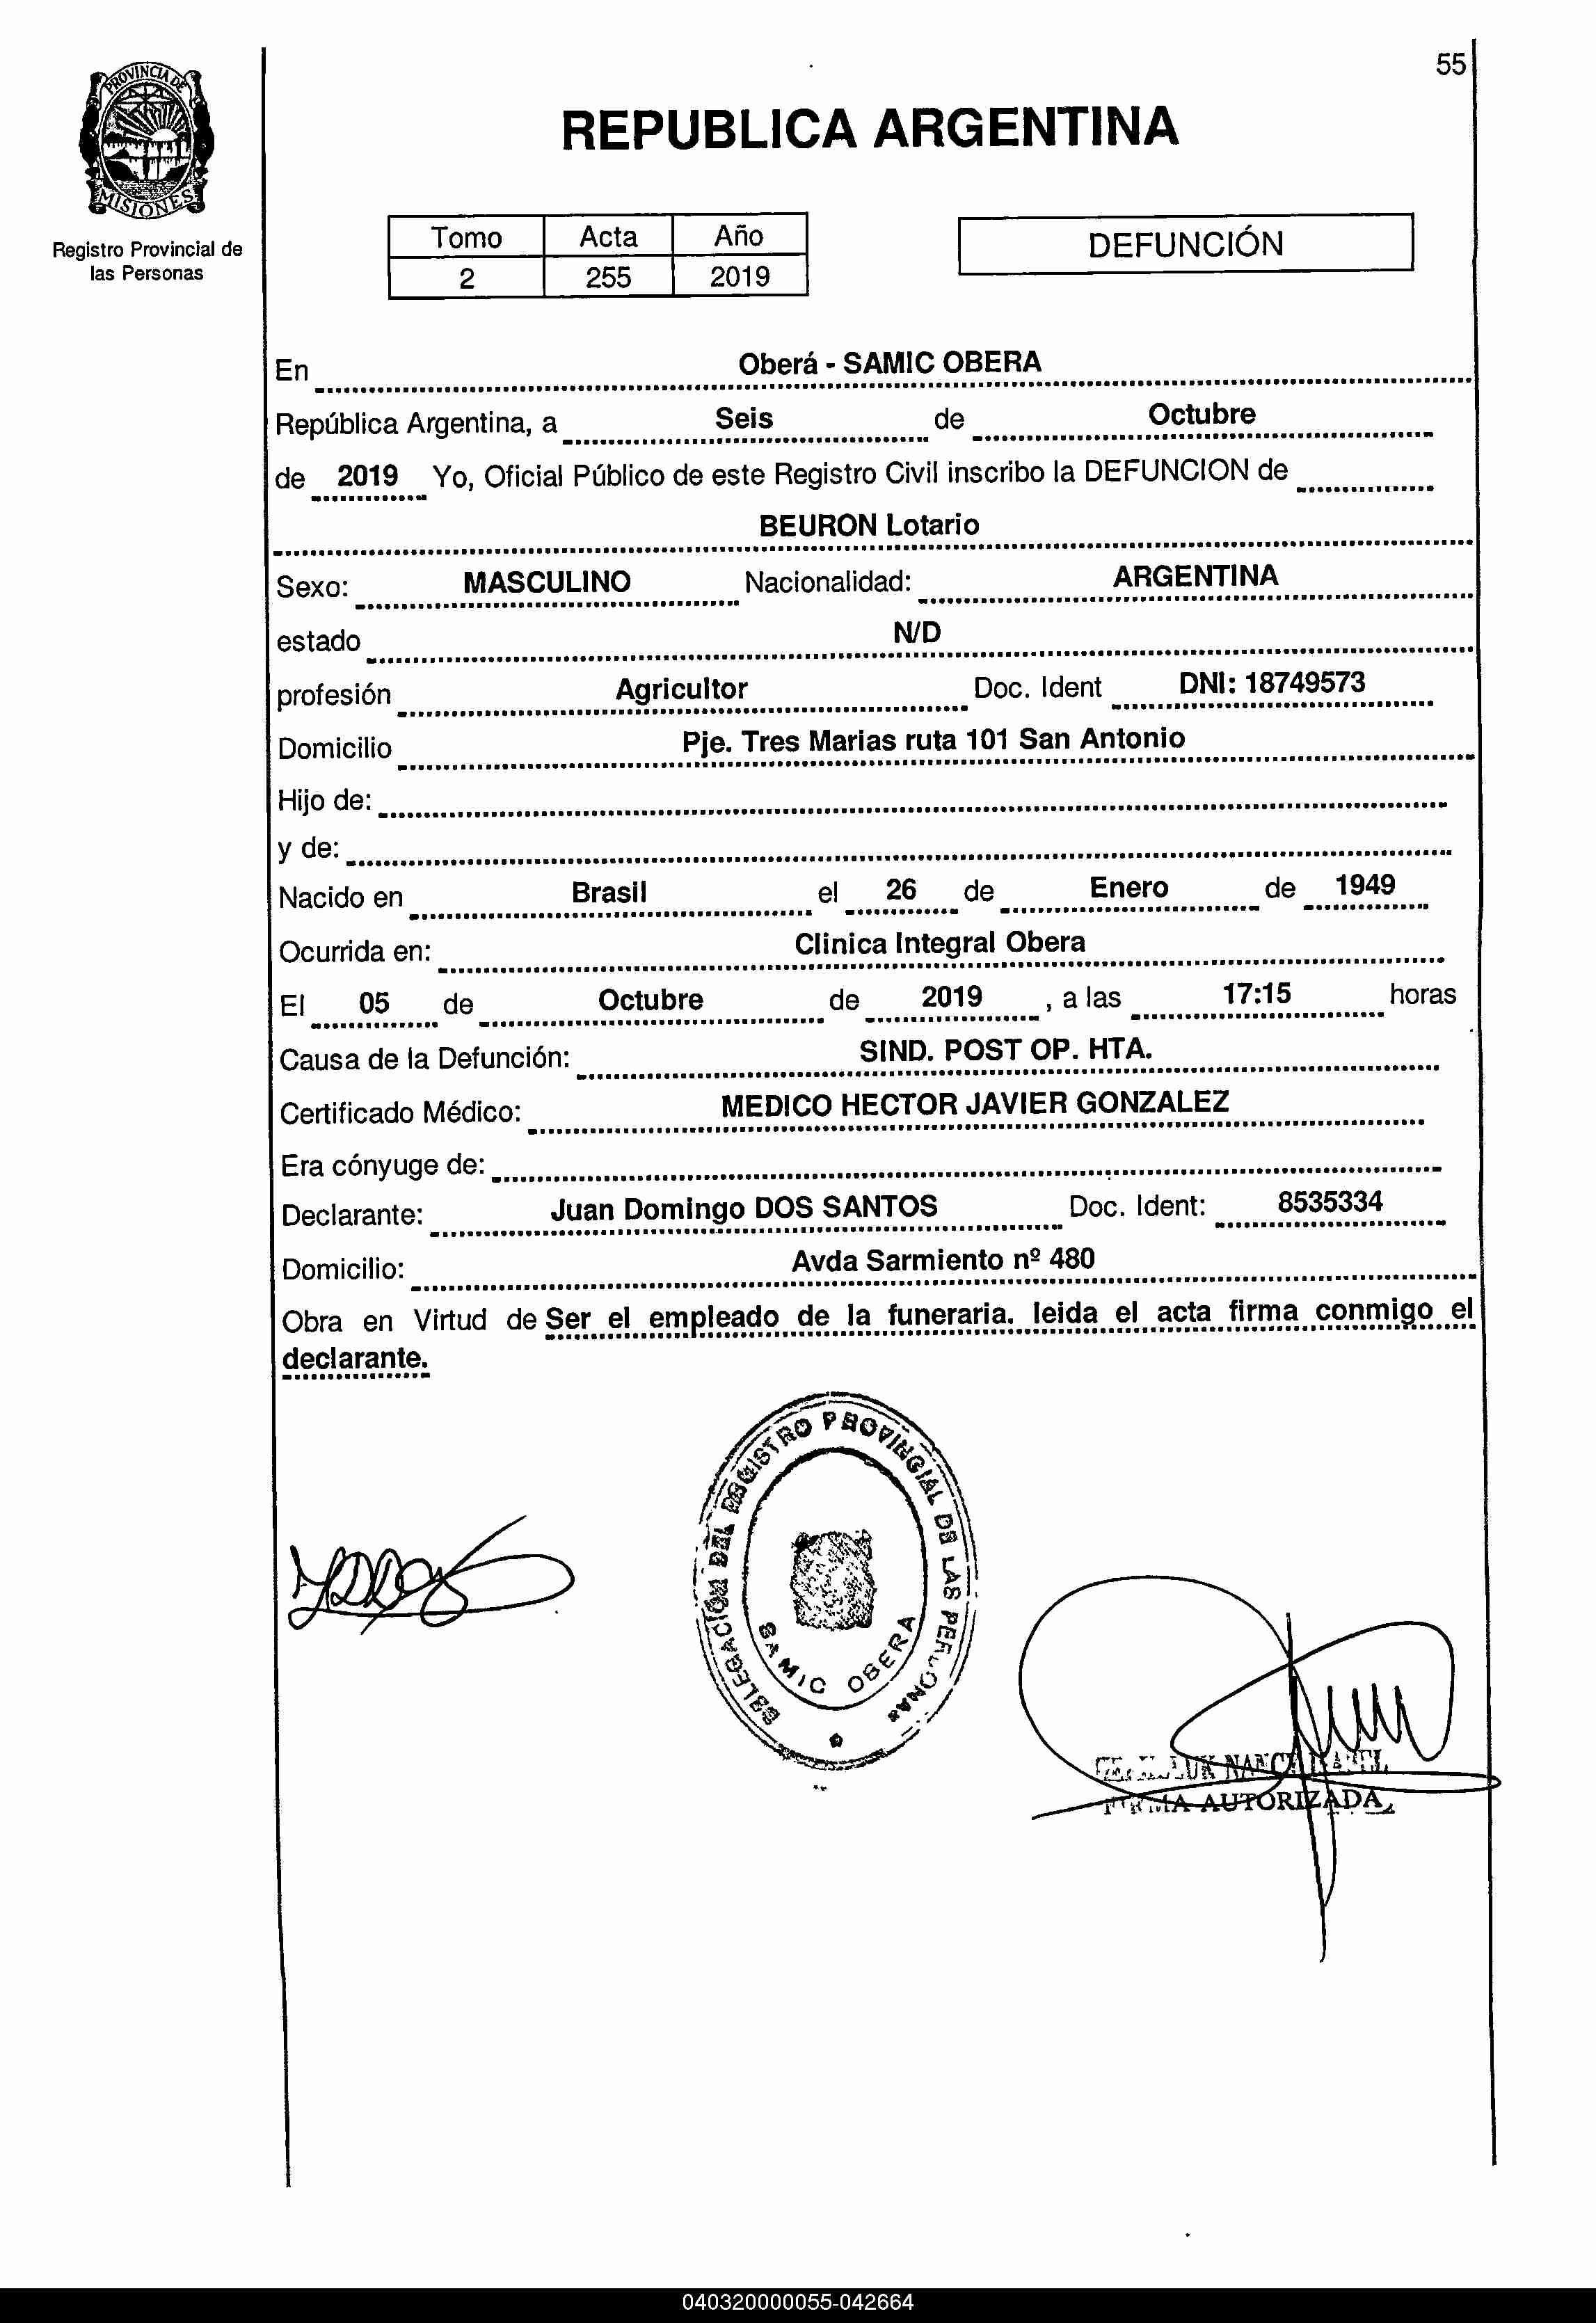 55
PROVINCIA DE
MISIONES
Registro Provincial de
las Personas
REPUBLICA ARGENTINA
Tomo Acta Año
2 255 2019
DEFUNCIÓN
En Oberá - SAMIC OBERA
República Argentina, a Seis de Octubre
de 2019 Yo, Oficial Público de este Registro Civil inscribo la DEFUNCION de
BEURON Lotario
Sexo: MASCULINO Nacionalidad: ARGENTINA
estado N/D
profesión Agricultor Doc. Ident DNI: 18749573
Domicilio Pje. Tres Marias ruta 101 San Antonio
Hijo de:
y de:
Nacido en Brasil el 26 de Enero de 1949
Ocurrida en: Clinica Integral Obera
El 05 de Octubre de 2019 , a las 17:15 horas
Causa de la Defunción: SIND. POST OP. HTA.
Certificado Médico: MEDICO HECTOR JAVIER GONZALEZ
Era cónyuge de:
Declarante: Juan Domingo DOS SANTOS Doc. Ident: 8535334
Domicilio: Avda Sarmiento nº 480
Obra en Virtud de Ser el empleado de la funeraria. leida el acta firma conmigo el
declarante.
DELEGACIÓN DEL REGISTRO PROVINCIAL DE LAS PERSONAS
SAMIC OBERA
FIRMA AUTORIZADA
040320000055-042664